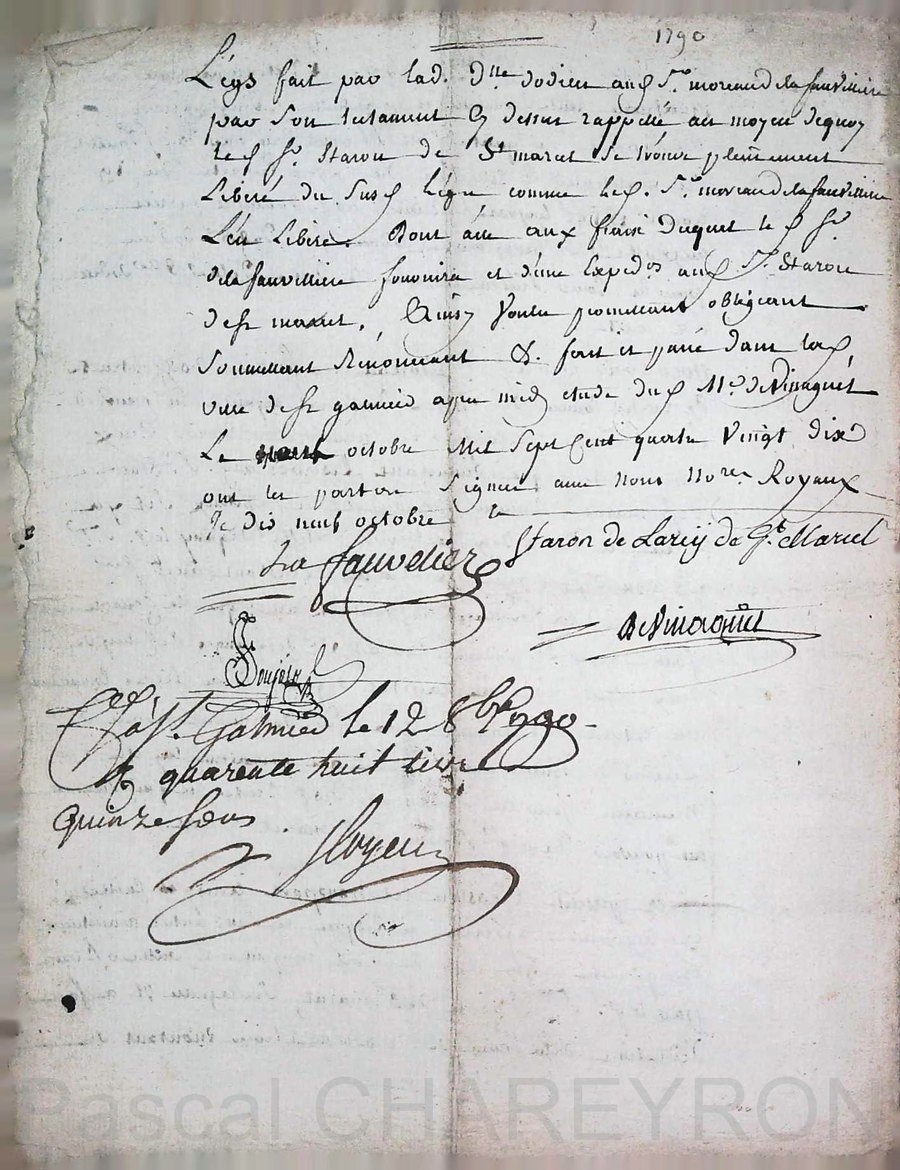 1790
Légs fait par lad. Dlle dodieu aud Sr. moreau de la fauvilliere
par son testament cy dessus rappellé au moyen dequoy
led Sr. Staron de St marcel se trouve pleinement
Libéré du susd Légs comme led. Sr. moreau de la fauvilliere
L'en Libère. Dont acte aux fraix duquel led Sr
de la fauvilliere fournira et d'une Expedon aud Sr. Staron
de st marcel. Ainsy Voulu promettant obligeant
soumettant Rénonceant &. fait et passé dans lad
ville de st galmier apres midy etude dud Me. deVinaquet
Le octobre Mil sept Cent quatre Vingt dix
ont les parties signées avec Nous Nores. Royaux
Le dix neuf octobre
La fauvelier Staron de Larey de St. Marcel
deVinaquet
Clé à St. Galmier le 12 8bre 1790
quarente huit Livres
quinze sous
Pascal CHAREYRON